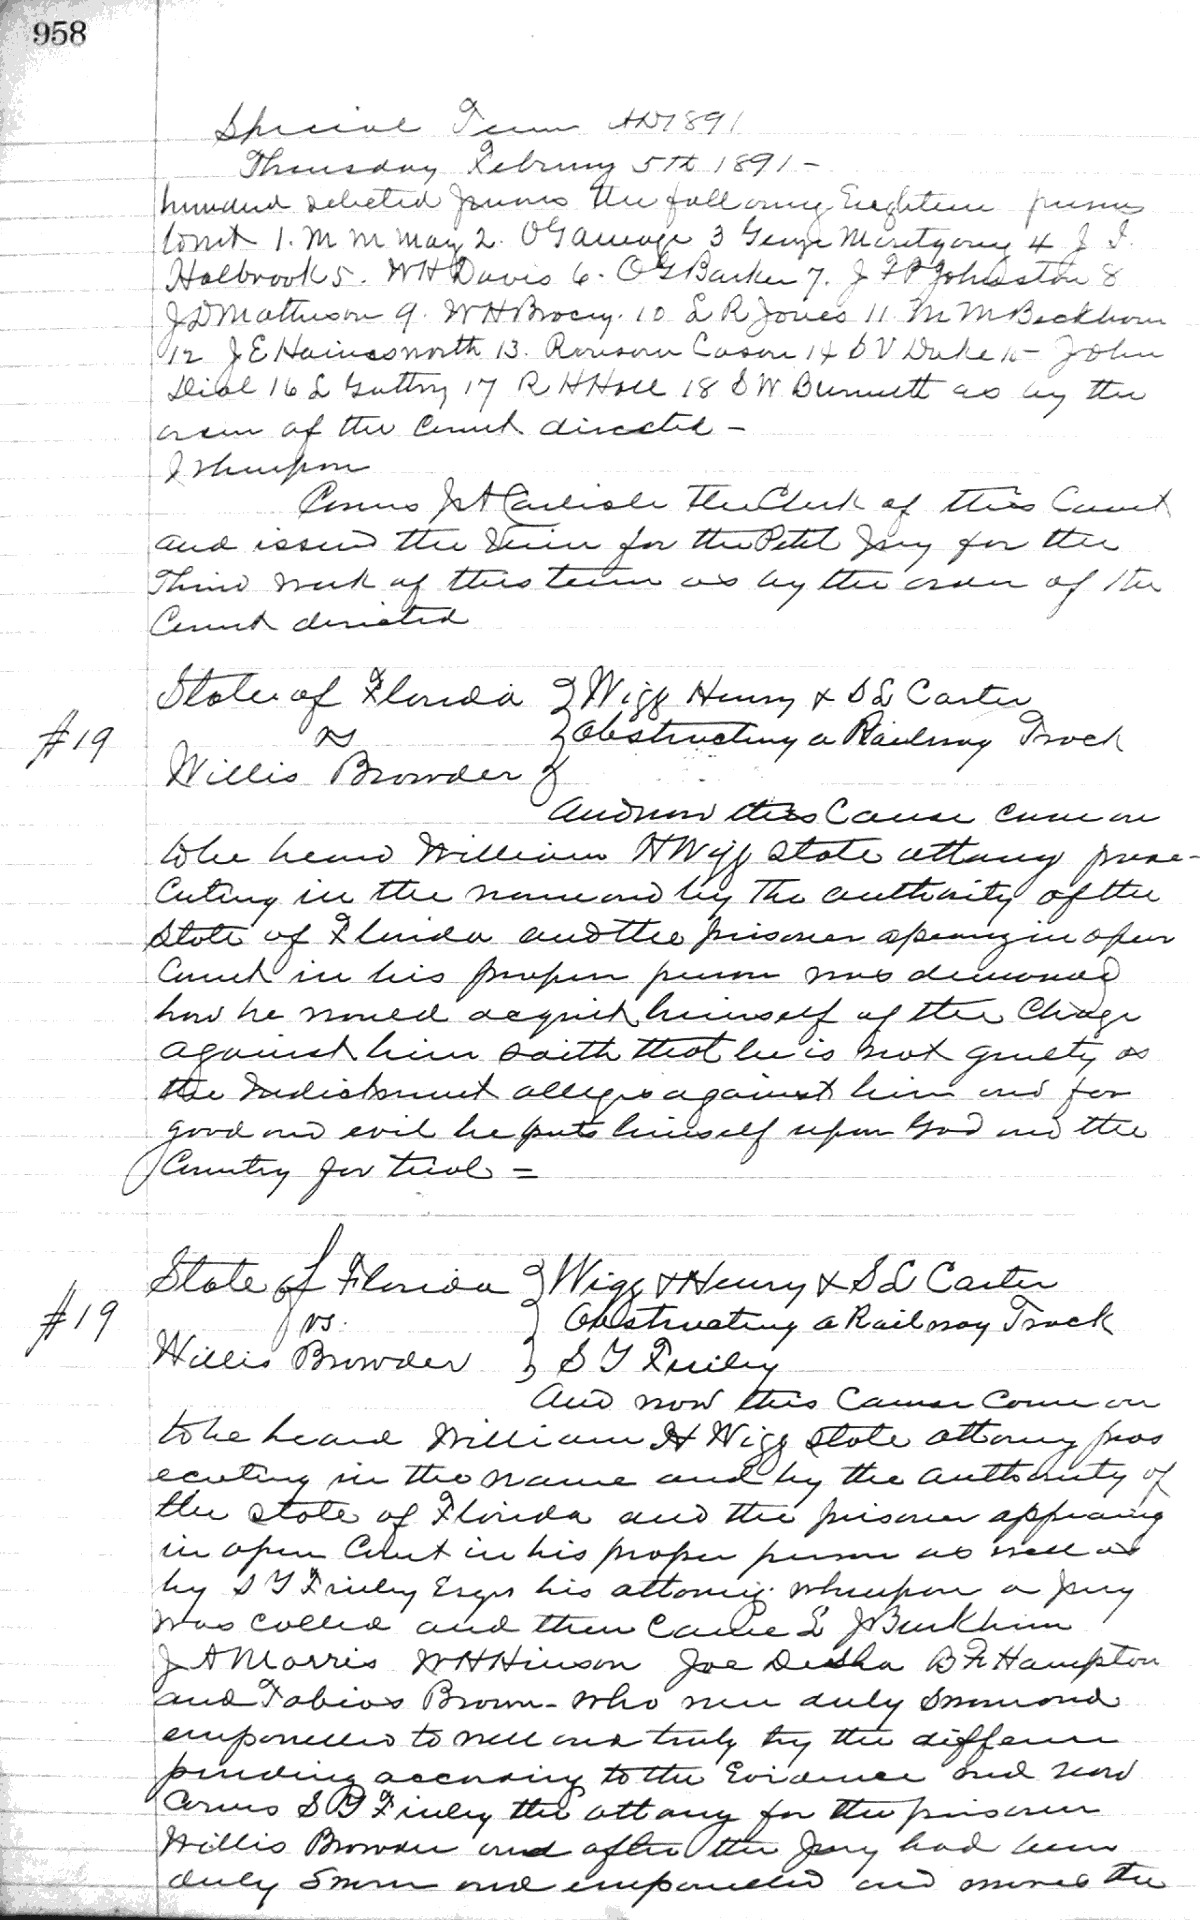 958
Special Term AD 1891
Thursday February 5th 1891 -
hundred selected Jurors the following Eighteen persons
to wit 1. M M May 2. O Gamage 3 George Montgomery 4 J T.
Holbrook 5. W H Davis 6. O G Barker 7. J F P Johnston 8
J D Matheson 9. W H Brocy. 10 L R Jones 11 M M Beckhom
12 J E Hainsworth 13. Ransom Cason 14 S V Duke 15 John
Dial 16 L Guttry 17 R H Hall 18 S W Burnett as by the
order of the Court directed -
Whereupon
Comes J A Carlisle the Clerk of this Court
and issued the Venire for the Petit Jury for the
Third week of this term as by the order of the
Court directed
State of Florida } Wigg Henry & S L Carter
#19 vs } Obstructing a Railway Track
Willis Browder }
And now this Cause came on
to be heard William H Wigg State attorny prose-
cuting in the name and by the authority of the
State of Florida and the prisoner apearing in open
Court in his proper person was demanded
how he would acquit himself of the Charge
against him saith that he is not guilty as
the Indictment alleges against him and for
good and evil he puts himself upon God and the
Country for trial =
State of Florida } Wigg & Henry & S L Carter
#19 vs. } Obstructing a Railway Track
Willis Browder } S Y Finley
And now this Cause Come on
to be heard William H Wigg State attorny pros
ecuting in the name and by the authority of
the State of Florida and the prisoner appearing
in open Court in his proper person as well as
by S Y Finley Esqr his attorney. whereupon a jury
was called and then Came E J Burkhim
J A Morris W H Hinson Joe Desha B F Hampton
and Fabios Brown - who were duly Summond
empanelled to well and truly try the difference
pending according to the Evidence and now
Comes S Y Finley the attorny for the prisoner
Willis Browder and after the Jury had been
duly Sworn and empanelled and moves the